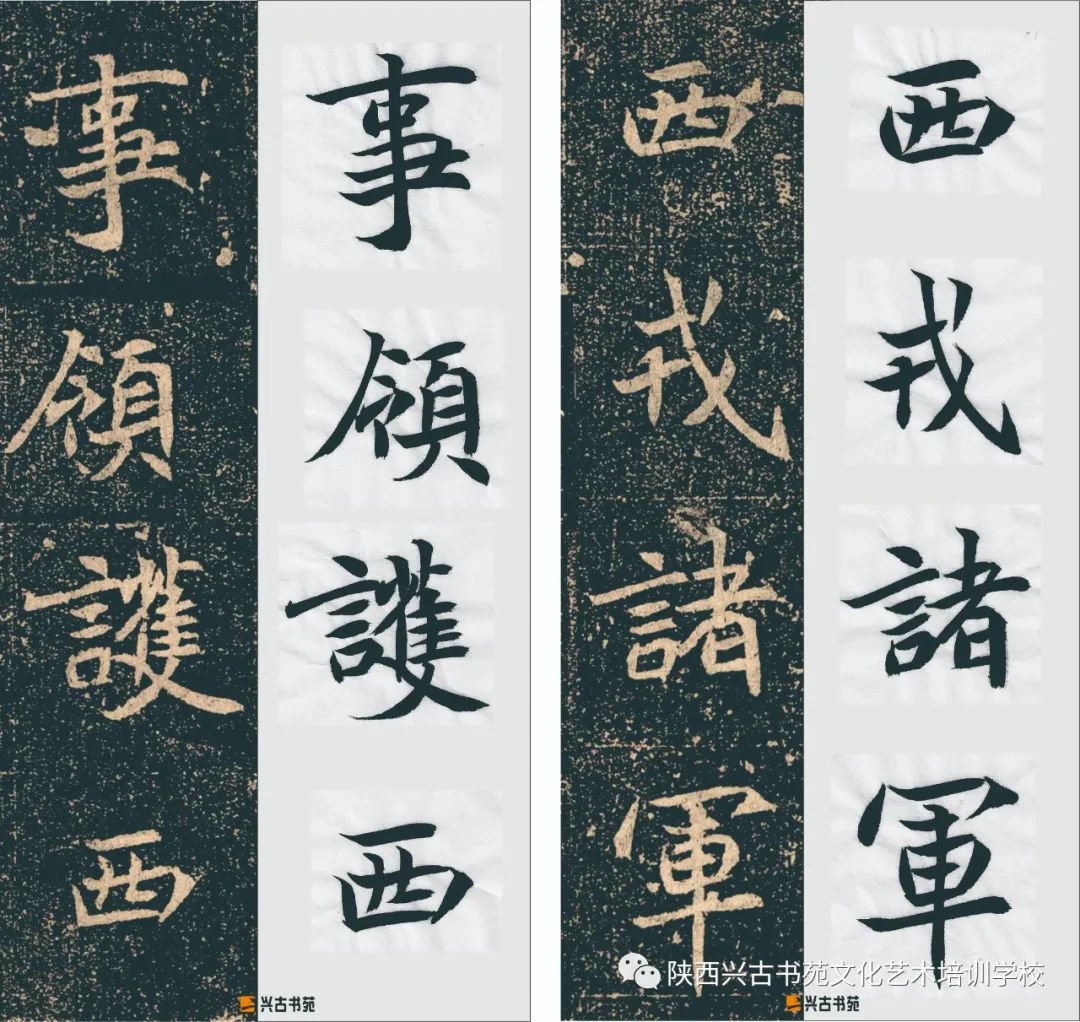 事
領
護
西
事
領
護
西
兴古书苑
西
戎
諸
軍
西
戎
諸
軍
陕西兴古书苑文化艺术培训学校
兴古书苑